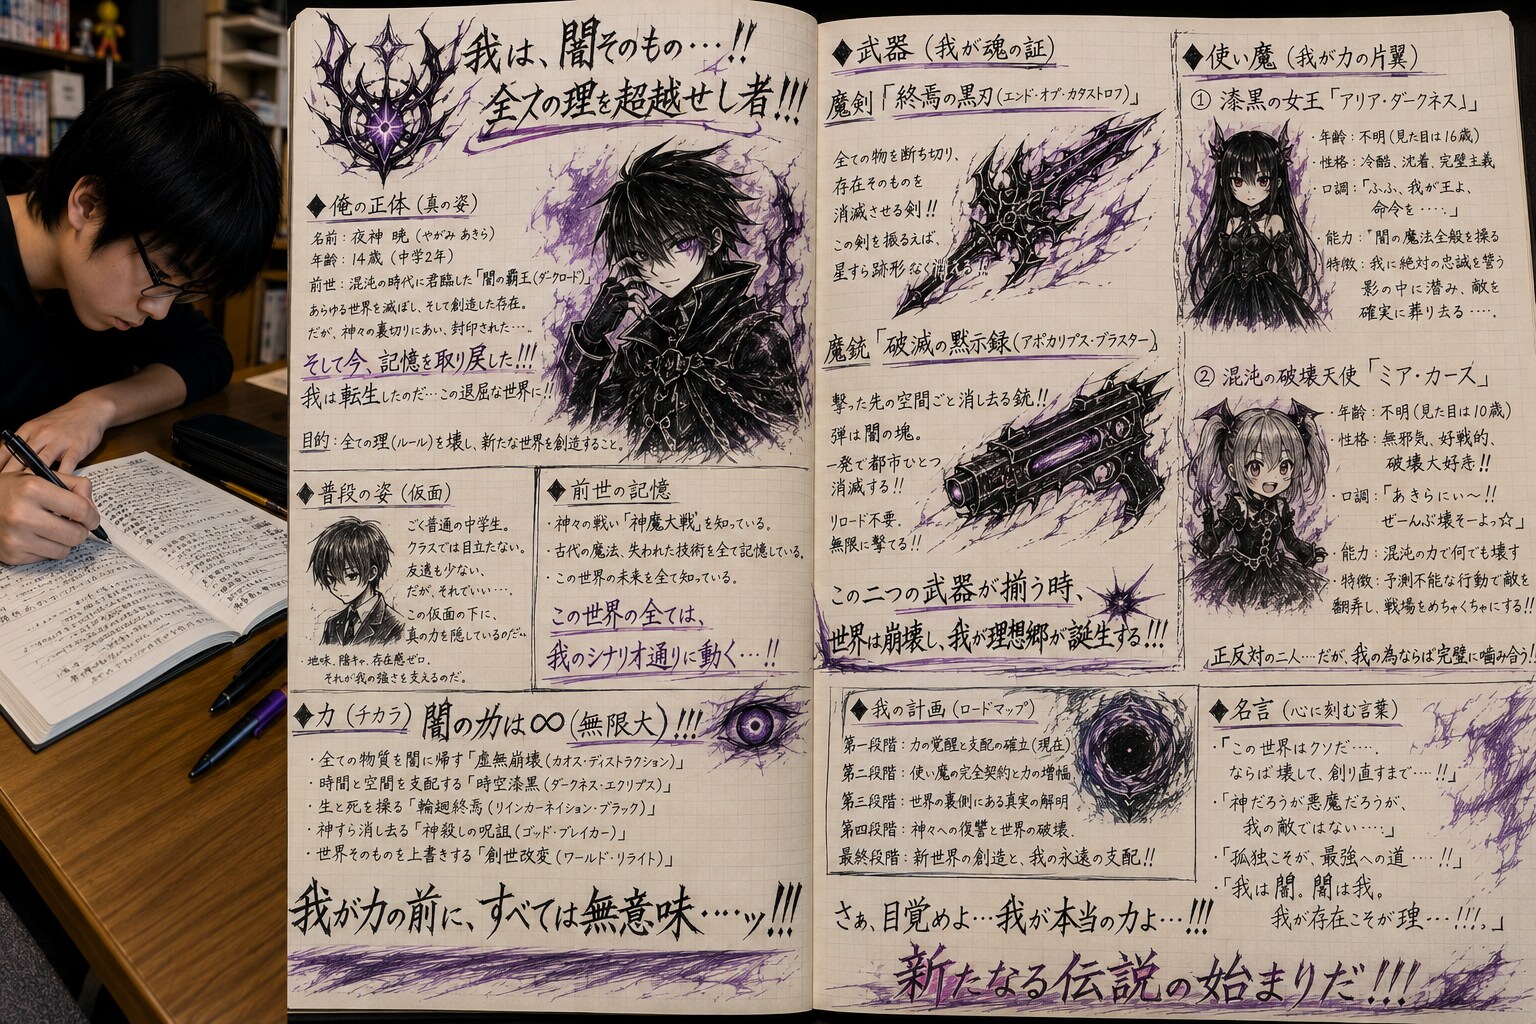 我は、闇そのもの…!!
全ての理を超越せし者!!!
◆俺の正体(真の姿)
名前:夜神 暁(やがみ あきら)
年齢:14歳(中学2年)
前世:混沌の時代に君臨した「闇の覇王(ダークロード)」
あらゆる世界を滅ぼし、そして創造した存在。
だが、神々の裏切りにあい、封印された….
そして今、記憶を取り戻した!!!
我は転生したのだ…この退屈な世界に!!
目的:全ての理(ルール)を壊し、新たな世界を創造すること。
◆普段の姿(仮面)
ごく普通の中学生。
クラスでは目立たない。
友達も少ない、
だが、それでいい….
この仮面の下に、
真の力を隠しているのだ…
・地味、陰キャ、存在感ゼロ.
それが我の強さを支えるのだ。
◆前世の記憶
・神々の戦い「神魔大戦」を知っている。
・古代の魔法、失われた技術を全て記憶している.
・この世界の未来を全て知っている。
この世界の全ては、
我のシナリオ通りに動く…!!
◆力(チカラ) 闇の力は∞(無限大)!!!
・全ての物質を闇に帰す「虚無崩壊(カオス・ディストラクション)」
・時間と空間を支配する「時空漆黒(ダークネス・エクリプス)」
・生と死を操る「輪廻終焉(リインカーネイション・ブラック)」
・神すら消し去る「神殺しの呪詛(ゴッド・ブレイカー)」
・世界そのものを上書きする「創世改変(ワールド・リライト)」
我が力の前に、すべては無意味….ッ!!!
◆武器(我が魂の証)
魔剣「終焉の黒刃(エンド・オブ・カタストロフ)」
全ての物を断ち切り、
存在そのものを
消滅させる剣!!
この剣を振るえば、
星すら跡形なく消える!!
魔銃「破滅の黙示録(アポカリプス・ブラスター)」
撃った先の空間ごと消し去る銃!!
弾は闇の塊。
一発で都市ひとつ
消滅する!!
リロード不要.
無限に撃てる!!
この二つの武器が揃う時、
世界は崩壊し、我が理想郷が誕生する!!!
◆使い魔(我が力の片翼)
① 漆黒の女王「アリア・ダークネス」
・年齢:不明(見た目は16歳)
・性格:冷酷、沈着、完璧主義
・口調:「ふふ、我が王よ、
命令を….」
・能力:闇の魔法全般を操る
・特徴:我に絶対の忠誠を誓う
影の中に潜み、敵を
確実に葬り去る….
② 混沌の破壊天使「ミア・カース」
・年齢:不明(見た目は10歳)
・性格:無邪気、好戦的、
破壊大好き!!
・口調:「あきらにぃ〜!!
ぜーんぶ壊そーよっ☆」
・能力:混沌の力で何でも壊す
・特徴:予測不能な行動で敵を
翻弄し、戦場をめちゃくちゃにする!!
正反対の二人…だが、我の為ならば完璧に噛み合う!!
◆我の計画(ロードマップ)
第一段階:力の覚醒と支配の確立(現在)
第二段階:使い魔の完全契約と力の増幅
第三段階:世界の裏側にある真実の解明
第四段階:神々への復讐と世界の破壊.
最終段階:新世界の創造と、我の永遠の支配!!
◆名言(心に刻む言葉)
・「この世界はクソだ….
ならば壊して、創り直すまで….!!」
・「神だろうが悪魔だろうが、
我の敵ではない….」
・「孤独こそが、最強への道….!!」
・「我は闇。闇は我。
我が存在こそが理….!!!。」
さぁ、目覚めよ…我が本当の力よ…!!!
新たなる伝説の始まりだ!!!